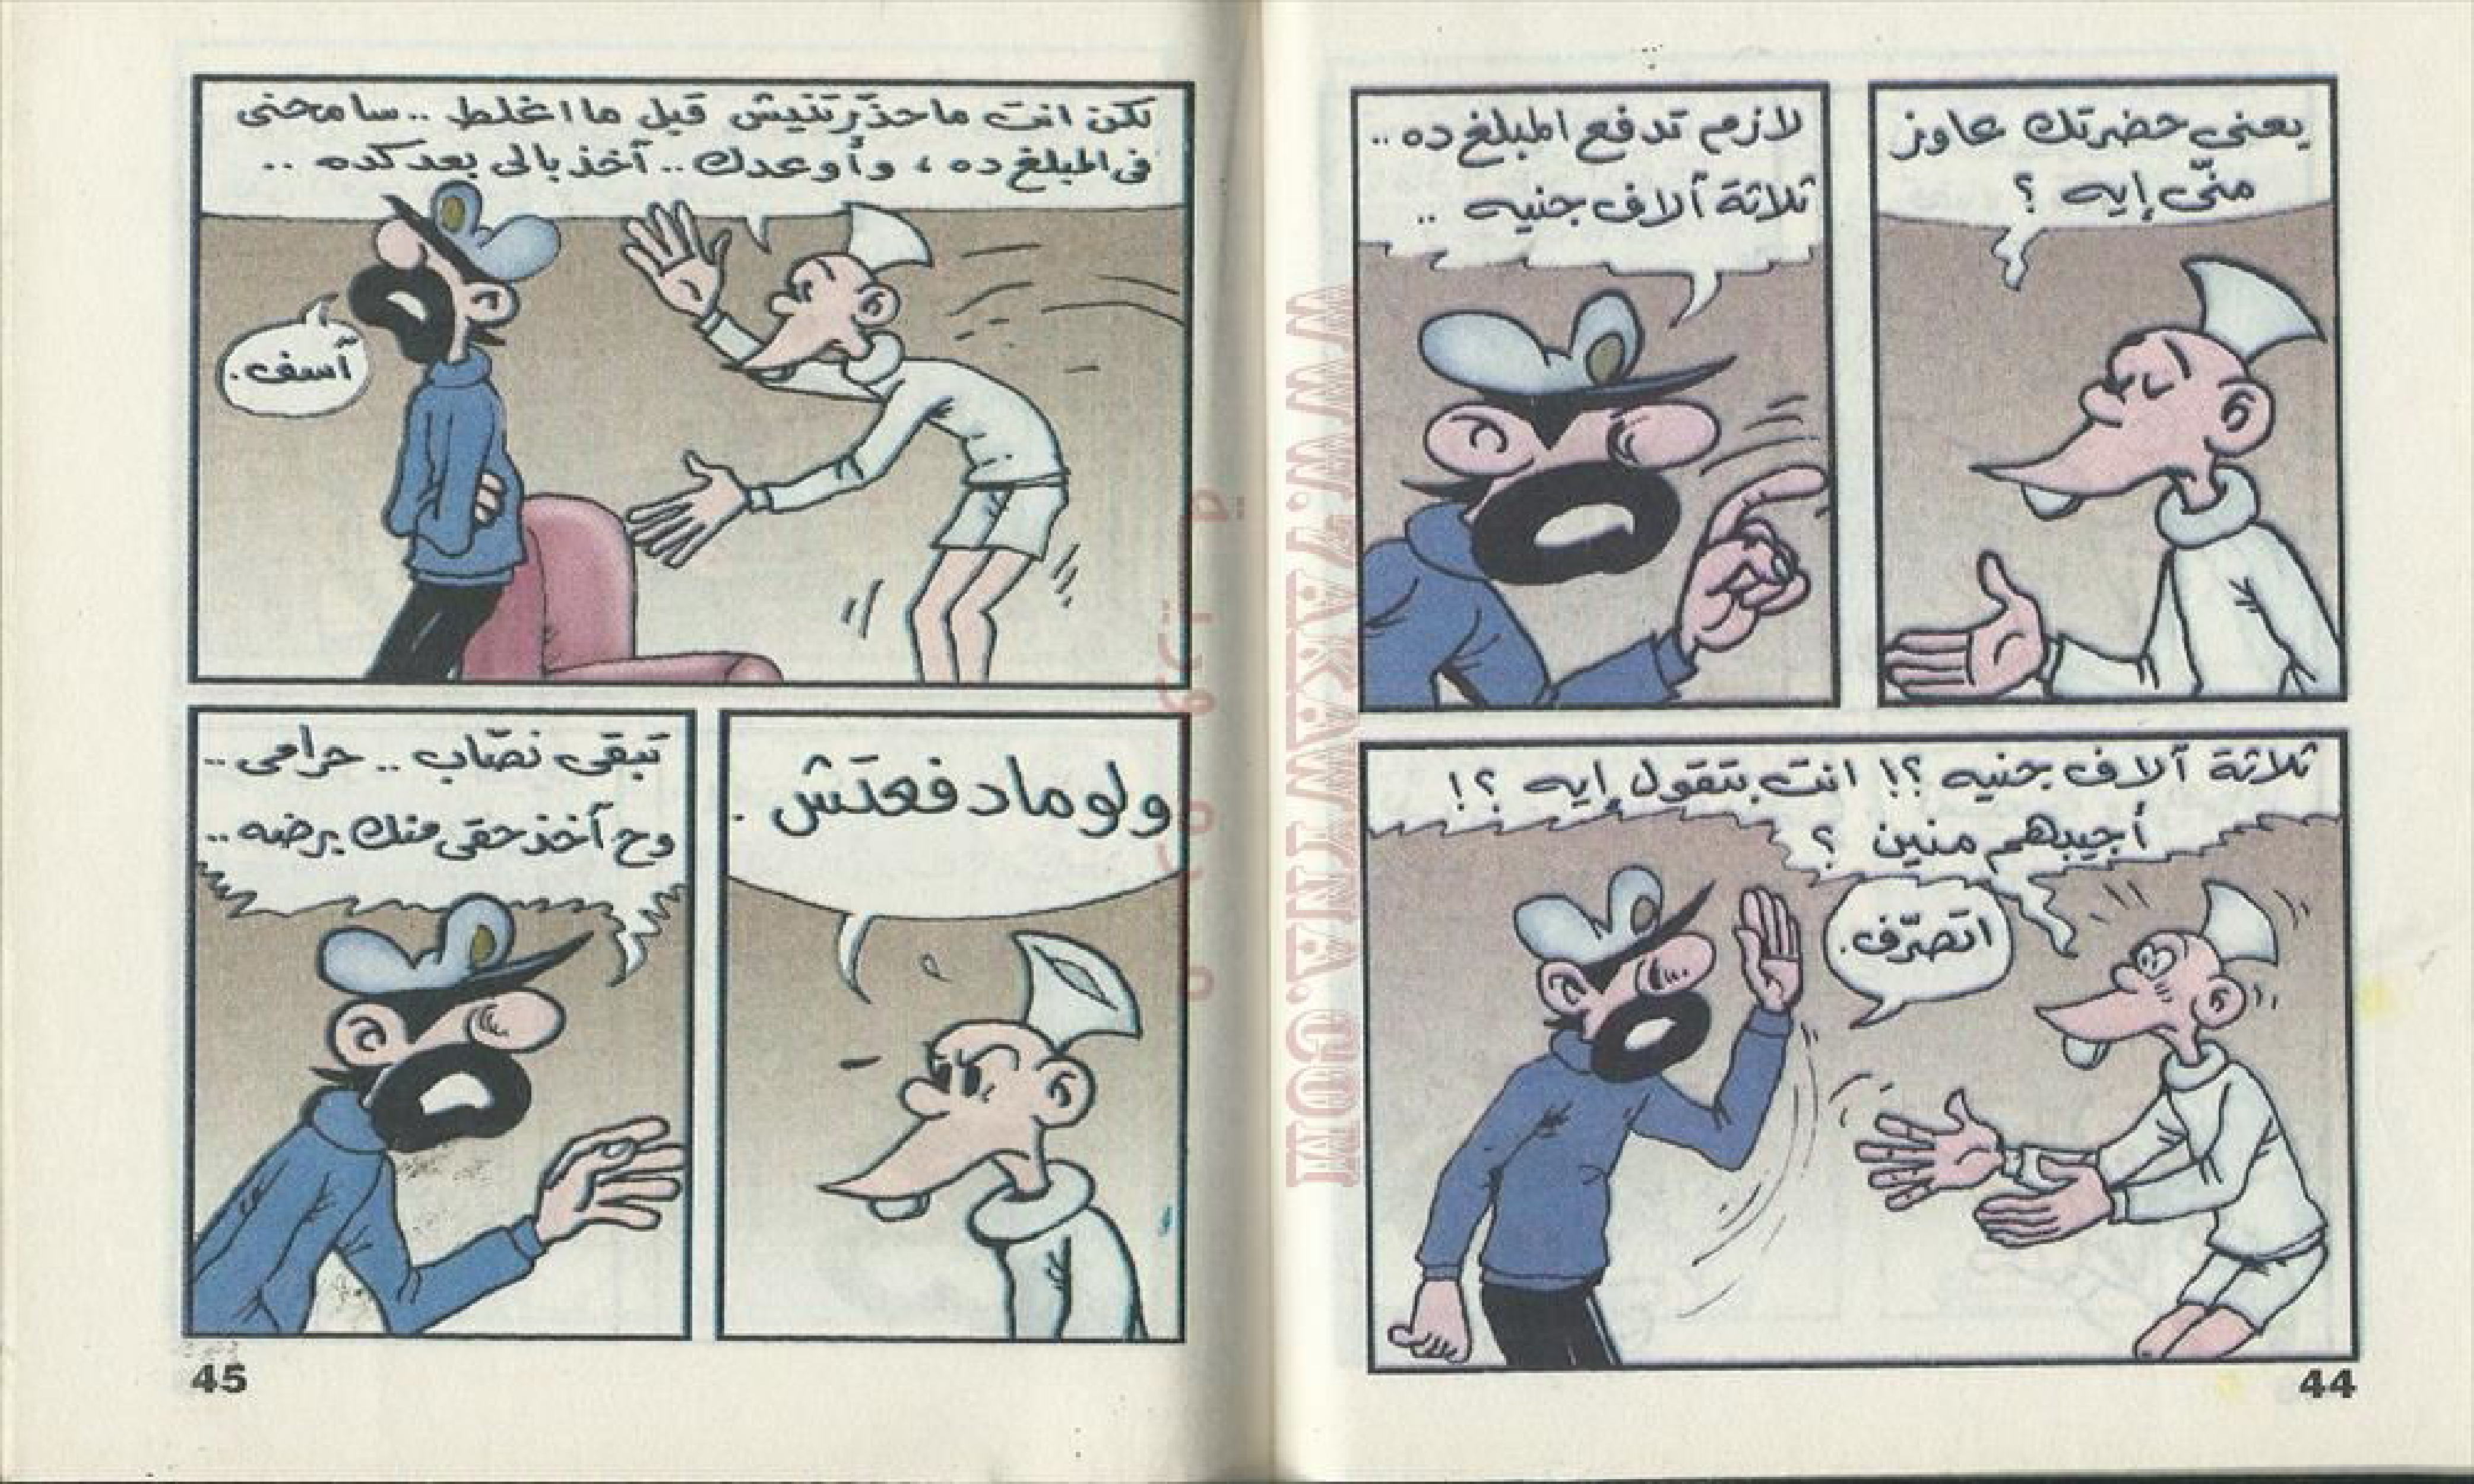 يعنى حضرتك عاوز
منّى إيه ؟
لازم تدفع المبلغ ده ..
ثلاثة آلاف جنيه ..
ثلاثة آلاف جنيه ؟! انت بتقول إيه ؟!
أجيبهم منين ؟
اتصرّف.
44
لكن انت ماحذّرتنيش قبل ما اغلط .. سامحنى
فى المبلغ ده ، وأوعدك .. آخذ بالى بعد كده ..
آسف.
ولو مادفعتش .
تبقى نصّاب .. حرامى ..
وح آخذ حقى منك برضه ..
45